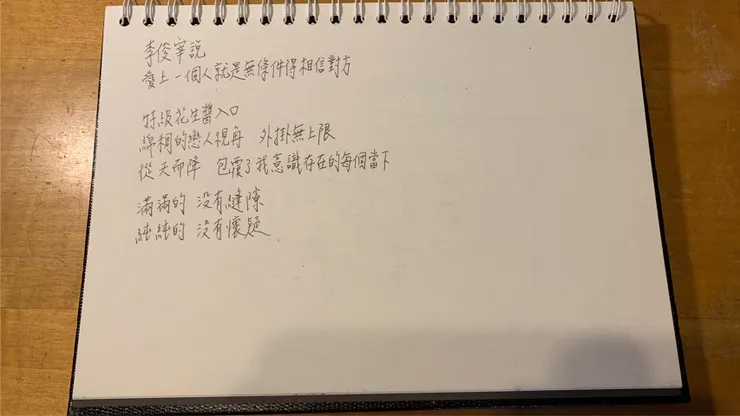 李俊宰說
愛上一個人就是無條件得相信對方
特級花生醬入口
綿稠的戀人視角 外掛無上限
從天而降 包覆了我意識存在的每個當下
滿滿的 沒有縫隙
純純的 沒有懷疑